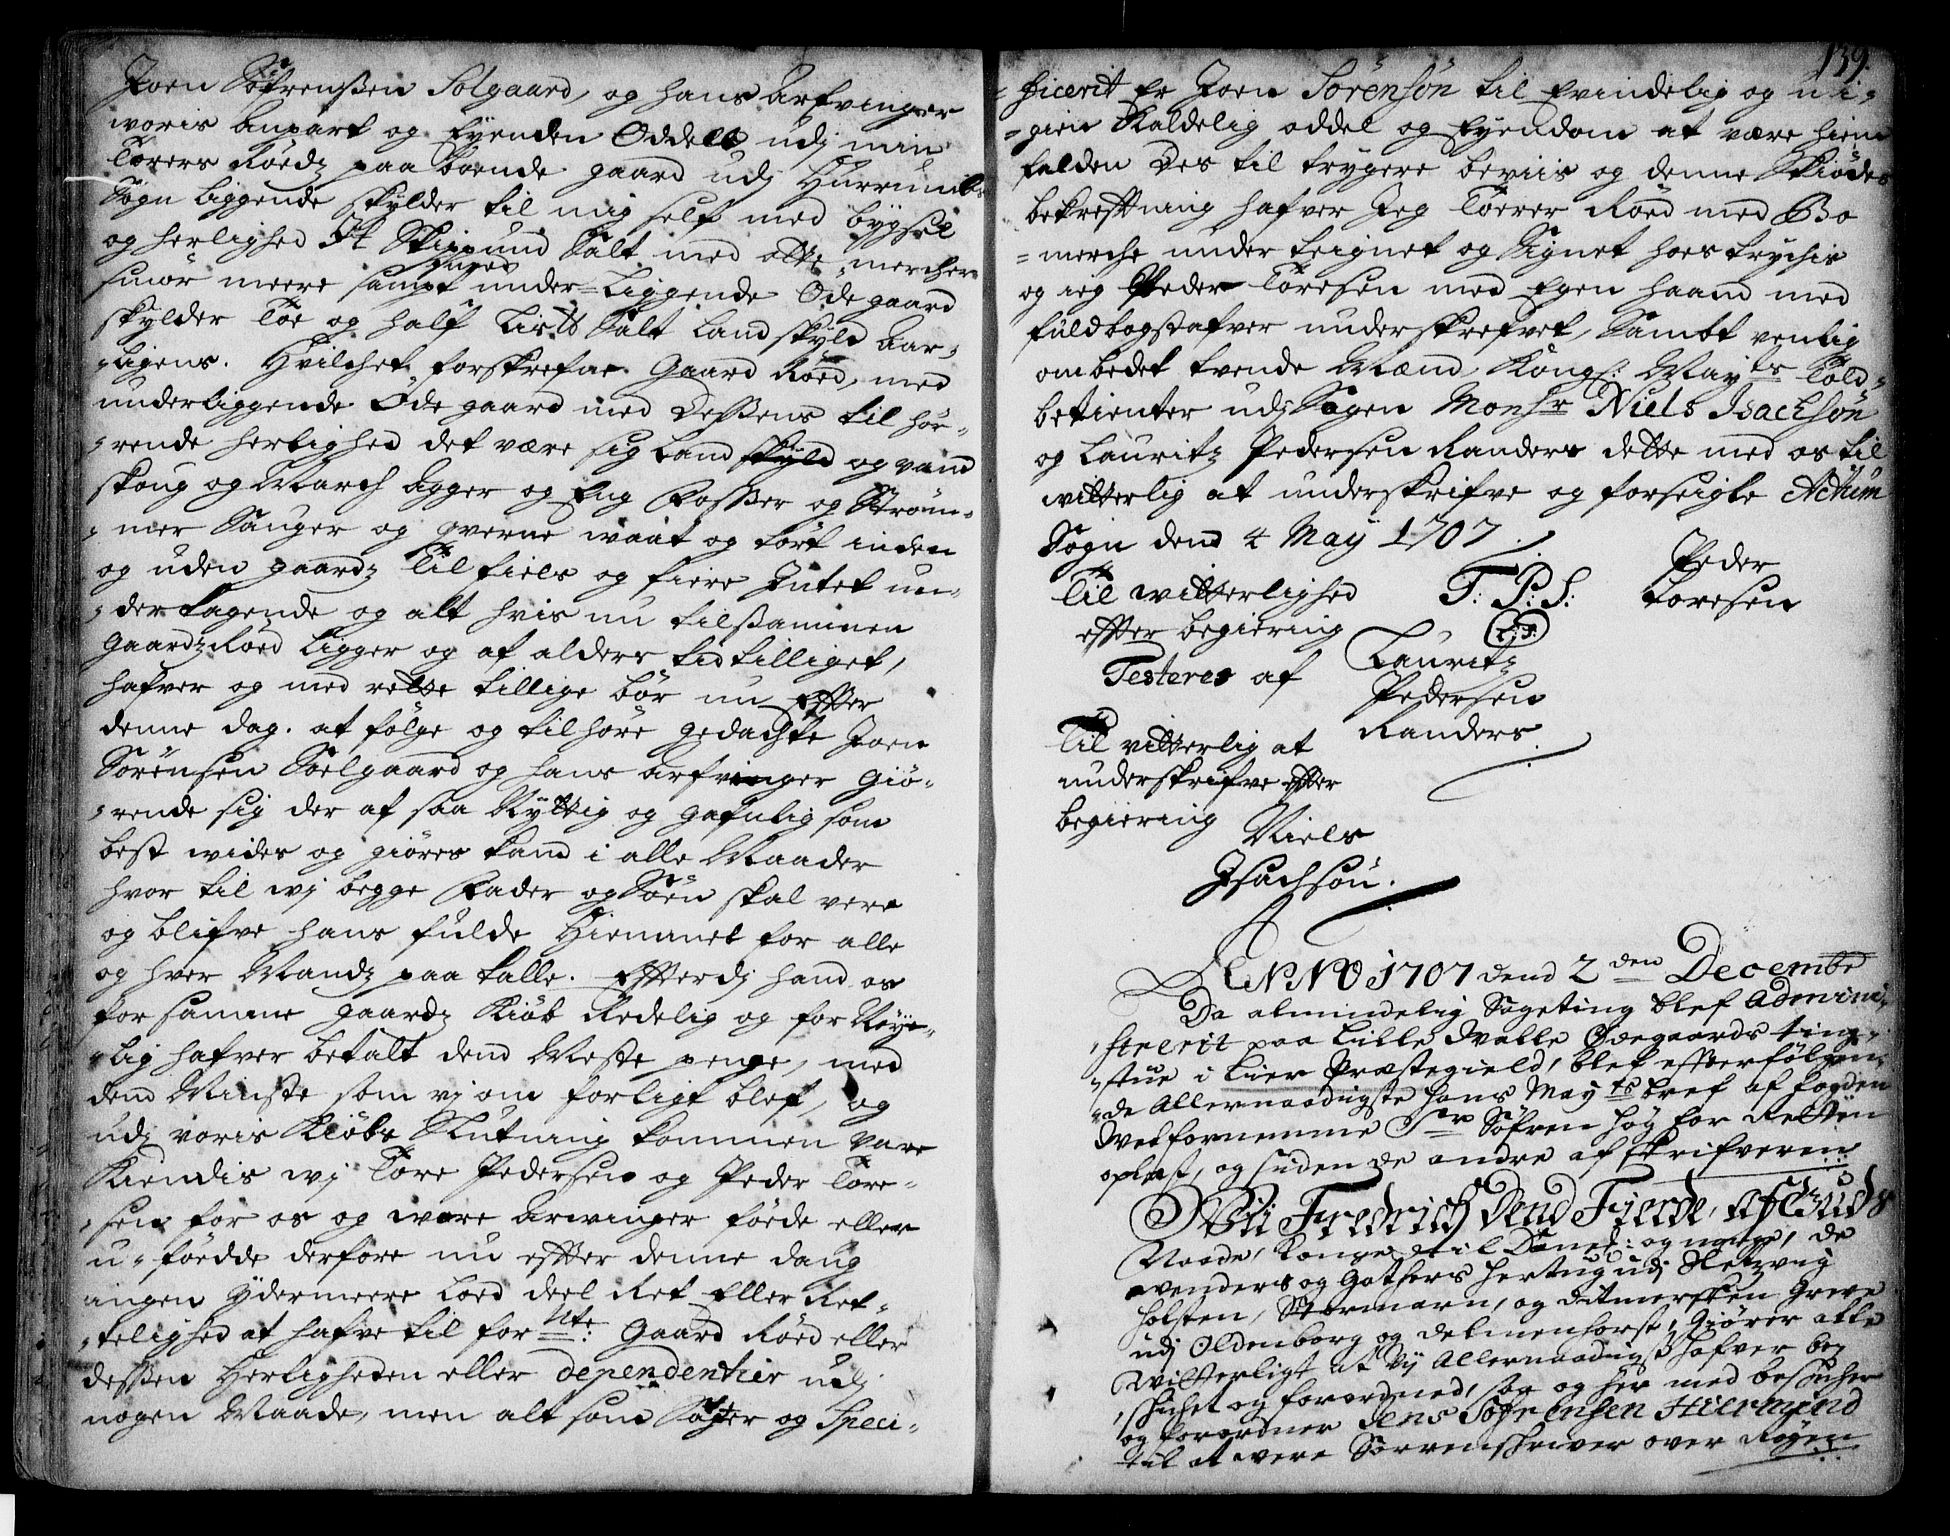 Joen Søfrenssen Solgaard, og hans Arfvinger
woris Anpart og Eyenden Oddell udj min
Torers Röedz paa boende gaard udj Hurrumb
Sogn liggende skylder til mig self med bygsel
og herlighed It Skippund Salt med otte mercher
smör meere sampt under-Liggende Öde gaard
skylder Toe og half Lisb Salt Landskyld Aar-
-ligens. Hvilchet forskrefne Gaard Röed, med
underliggende Öde gaard med Dessens til hör-
-rende herlighed det være sig Land skyld og vand
skoug og March Agger og Eng Fosser og Ström-
-mer Sauger og qverne waat og tört inden
og uden gaardz Til fiels og fiere Intet un-
-dertagende og alt hvis nu tilsammen
Gaardz Röed Ligger og af alders tid tilliget,
hafver og med rette tillige bör nu Effter
denne dag. at fölge og tilhöre gedachte Joen
Sörensen Soelgaard og hans arfvinger giö-
-rende sig der af saa Nyttig og gafnlig som
best wides og giöres kand i alle Maader
hvor til wj begge Fader og Söen skal vere
og blifve hans fulde Hiemmel for alle
og hver Mandz paa talle. Efterdj hand os
for samme gaardz Kiöb Redelig og for Nöye-
-lig hafver betalt dend Meste penge, med
dend Minste som vj om forligt blef, og
udj voris Kiöbs Slutning kommen vare
Kiendis wj Tore Pedersen og Peder Tore-
-sen for os og wore Arvinger föede eller
u-föedde derfore nu effter denne daug
ingen Ydermeere Loed deel Ret Eller Ret-
-telighed at hafve til forNte: Gaard Röed eller
dessen Herligheden eller dependentier udj
nogen Maade, men alt som Sagter og Speci-
139.
-ficerit Er Joen Sörensön til Evindelig og u i-
-gien Kaldelig oddel og Eyendom at være hiem
falden Des til trygere beviis og denne Skiödes
bekrefftning hafver Jeg Toerer Röed med Bo
-merche under teignet og Signet hoes trychis
og ieg Peder Toresen med Egen haand med
fuldbogstafver underskrefvet, Sambt venlig
ombedet tvende Mænd Kongl: Mayts Told-
betienter udj Sogen Monsr Niels Isachsön
og Lauritz Pedersen Randers dette med os til
witterlig at underskrifve og forseigle Actum
Sogn dend 4 May 1707
Til witterlighed T: P: S: Peder
Toresen
effter begiering L:S:
Testeres af Lauritz
Pedersen
Randers.
Til vitterlig at
underskrifve effter
begiering Niels
Isachsön.
ANNO 1707 dend 2den Decembe
Da almindelig Sageting blef Admini-
-strerit paa Lille Walle Ödegaards ting-
-stue i Lier Præstegield, blef effterfölgen-
-de Allernaadigste Hans Mayts bref af fogden
Welfornemme Sr Söfren Höy for Retten
oplæst, og siden de andre af skrifveren
Wii Fredrich Dend Fierde, af Guds
Naade, Konge til Danm: og norge, de
wenders og Gothers Hertug udj Sletzvig
Holsten, Stormarn, og Ditmersken Greve
udj Oldenborg og delmenhorst, Giörer alle
Witterligt at Vij Allernaadigst hafver be-
-skichet og forordned, saa og her med beskicher
og forordner Jens Söfrensen Hiermind
til at were Sorrenschriver over Röyen